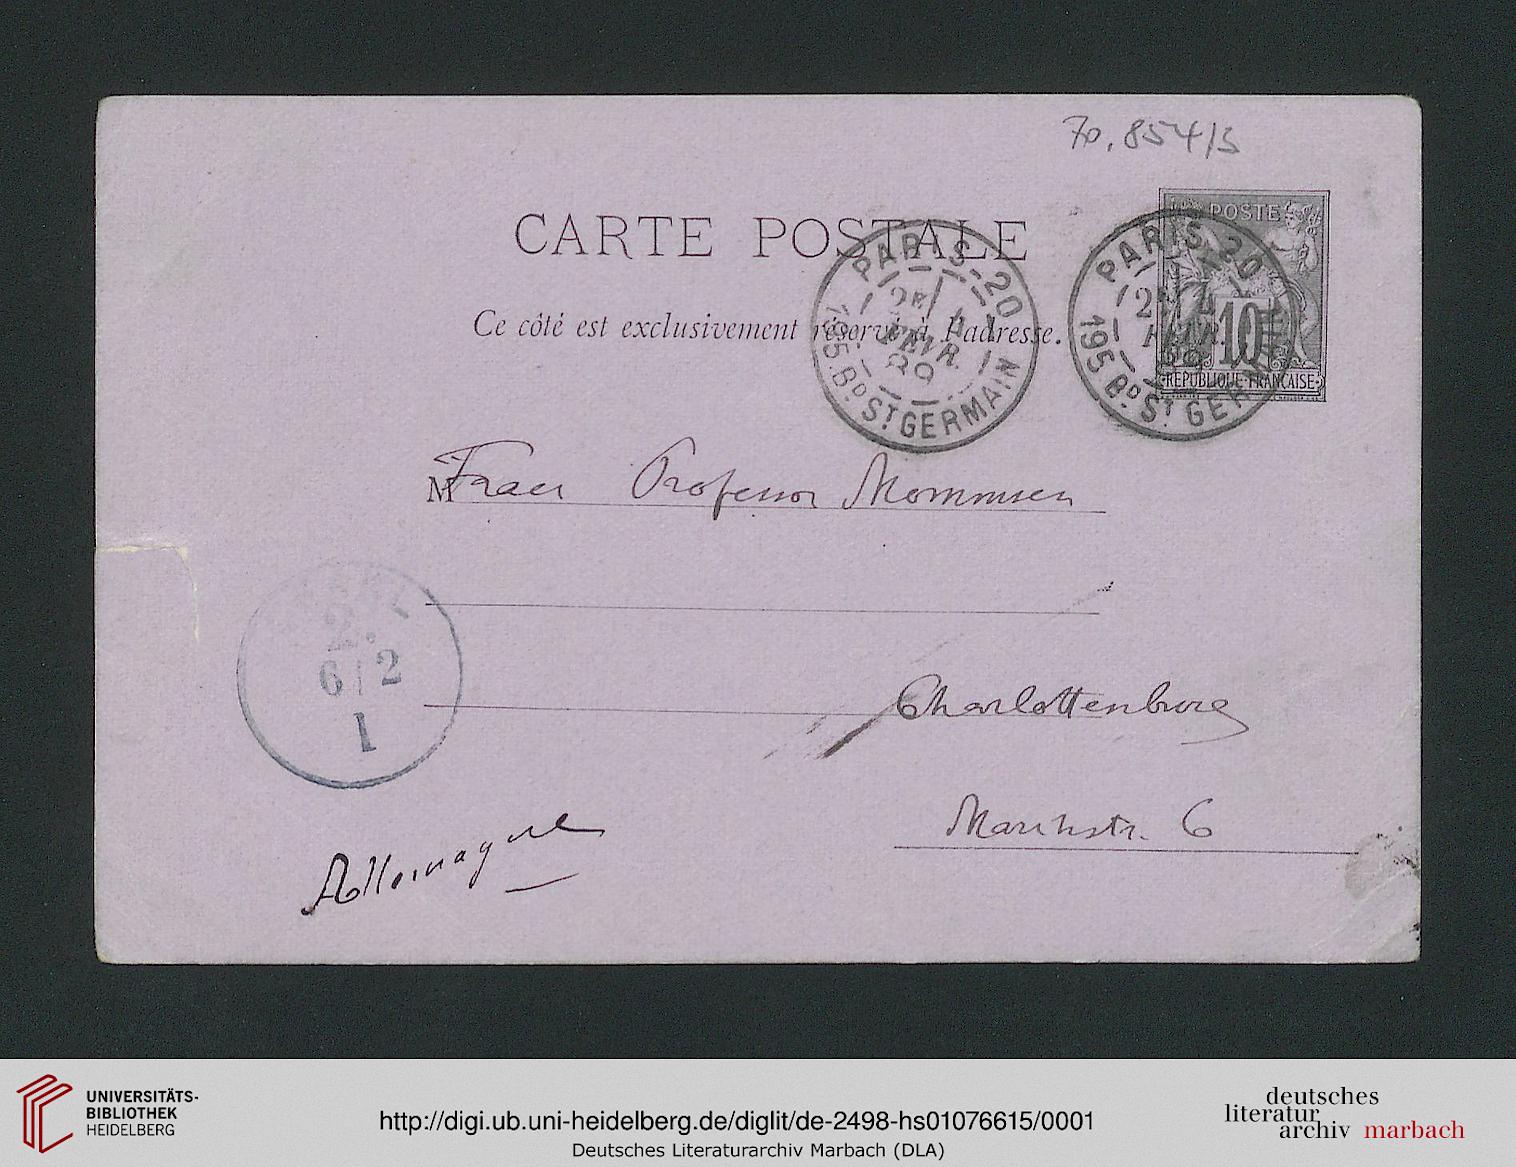 70.854/3
CARTE POSTALE
POSTE
10
REPUBLIQUE FRANÇAISE
PARIS-20
2E 4
FEVR
89
195. BD ST GERMAIN
PARIS 20
2E 4
FEVR
89
195 BD ST GERMAIN
Ce côté est exclusivement réservé à l'adresse.
M Frau Professor Mommsen
6 2
1
Charlottenburg
Marchstr. 6
Allemagne
UNIVERSITÄTS-
BIBLIOTHEK
HEIDELBERG
http://digi.ub.uni-heidelberg.de/diglit/de-2498-hs01076615/0001
Deutsches Literaturarchiv Marbach (DLA)
deutsches
literatur
archiv marbach